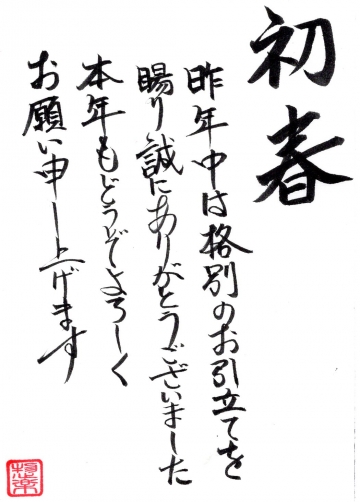 初春
昨年中は格別のお引立てを
賜り誠にありがとうございました
本年もどうぞよろしく
お願い申し上げます